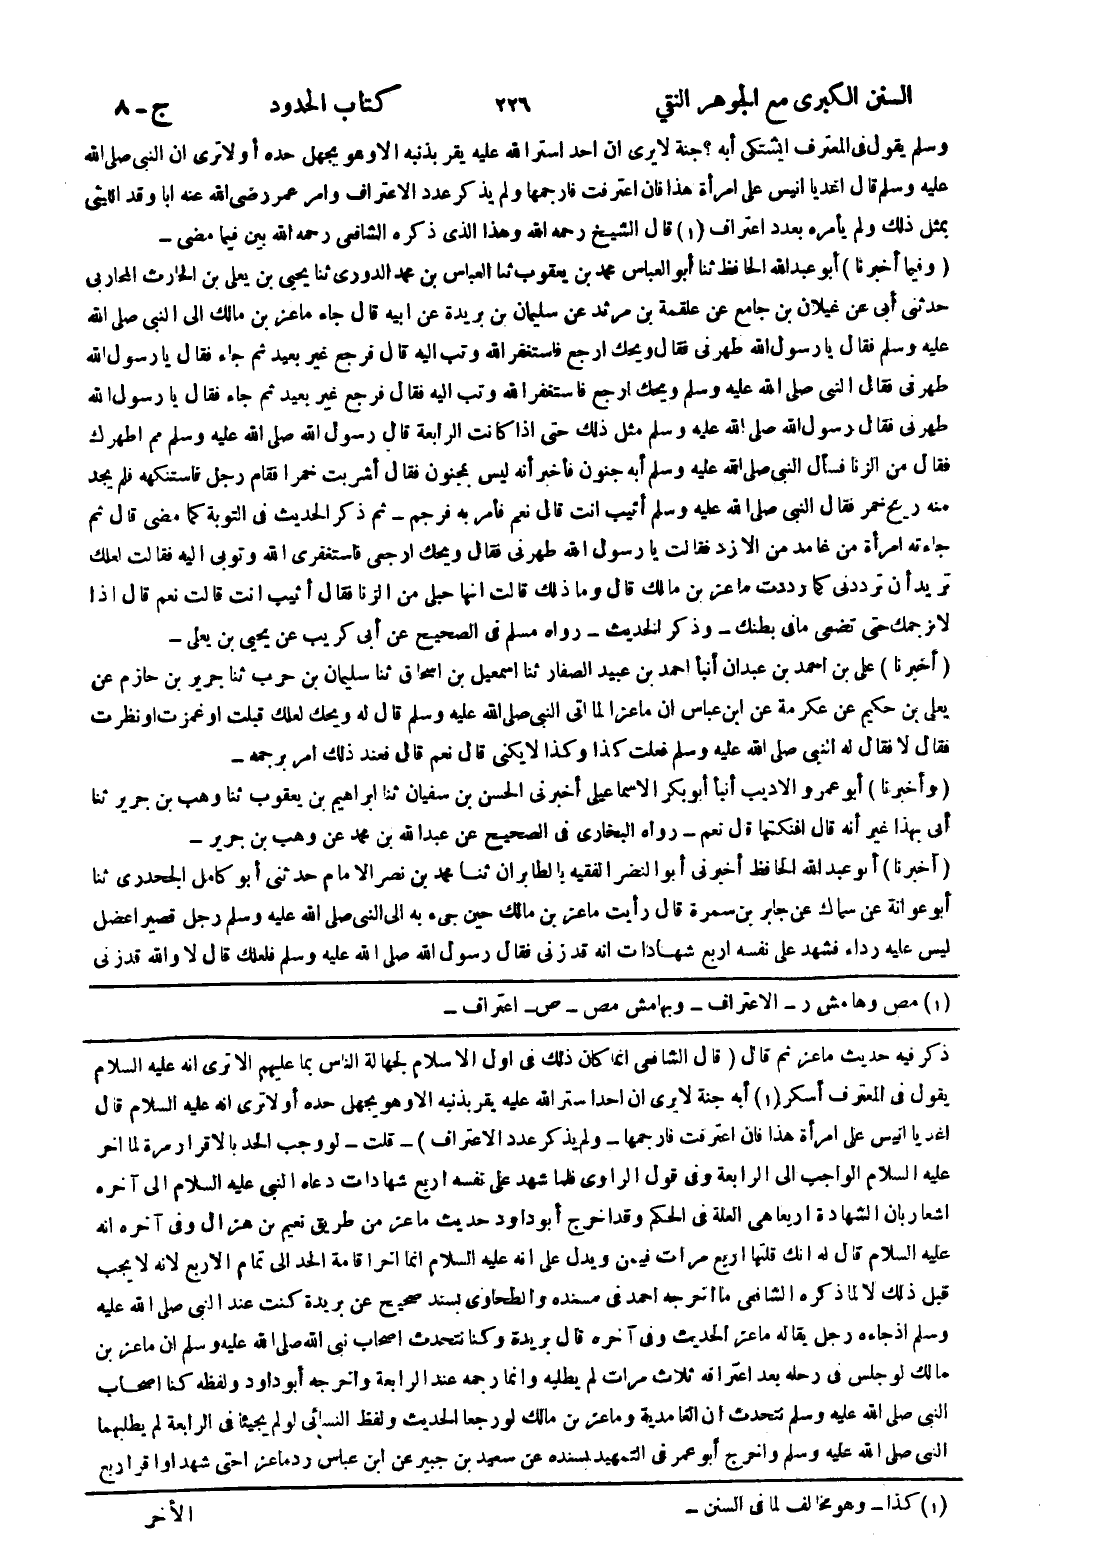 السنن الكبرى مع الجوهر النقي ٢٢٦ كتاب الحدود ج - ٨
وسلم يقول فى المعترف ايشتكى أبه ؟ جنة لا يرى ان احد استر الله عليه يقر بذنبه الا وهو يجهل حده أولا ترى ان النبى صلى الله
عليه وسلم قال اغد يا انيس على امرأة هذا فان اعترفت فارجمها ولم يذكر عدد الاعتراف وامر عمر رضى الله عنه ابا وقد الليثى
بمثل ذلك ولم يأمره بعدد اعتراف (١) قال الشيخ رحمه الله وهذا الذى ذكره الشافعى رحمه الله بين فيما مضى ـ
( وفيما أخبرنا ) أبو عبدالله الحافظ ثنا أبو العباس محمد بن يعقوب ثنا العباس بن محمد الدورى ثنا يحيى بن يعلى بن الحارث المحاربى
حدثنى أبى عن غيلان بن جامع عن علقمة بن مرثد عن سليمان بن بريدة عن ابيه قال جاء ماعز بن مالك الى النبى صلى الله
عليه وسلم فقال يا رسول الله طهرنى فقال ويحك ارجع فاستغفر الله وتب اليه قال فرجع غير بعيد ثم جاء فقال يا رسول الله
طهرنى فقال النبى صلى الله عليه وسلم ويحك ارجع فاستغفر الله وتب اليه فقال فرجع غير بعيد ثم جاء فقال يا رسول الله
طهرنى فقال رسول الله صلى الله عليه وسلم مثل ذلك حتى اذا كانت الرابعة قال رسول الله صلى الله عليه وسلم مم اطهرك
فقال من الزنا فسأل النبى صلى الله عليه وسلم أبه جنون فأخبر أنه ليس بمجنون فقال أشربت خمرا فقام رجل فاستنكهه فلم يجد
منه ريح خمر فقال النبى صلى الله عليه وسلم أثيب انت قال نعم فأمر به فرجم ـ ثم ذكر الحديث فى التوبة كما مضى قال ثم
جاءته امرأة من غامد من الازد فقالت يا رسول الله طهرنى فقال ويحك ارجعى فاستغفرى الله وتوبى اليه فقالت لعلك
تريد أن ترددنى كما رددت ماعز بن مالك قال وما ذلك قالت انها حبلى من الزنا فقال أثيب انت قالت نعم قال اذا
لا نرجمك حتى تضعى مافى بطنك ـ وذكر الحديث ـ رواه مسلم فى الصحيح عن أبى كريب عن يحيى بن يعلى ـ
( أخبرنا ) على بن احمد بن عبدان أنبأ احمد بن عبيد الصفار ثنا اسمعيل بن اسحاق ثنا سليمان بن حرب ثنا جرير بن حازم عن
يعلى بن حكيم عن عكرمة عن ابن عباس ان ماعزا لما اتى النبى صلى الله عليه وسلم قال له ويحك لعلك قبلت او غمزت او نظرت
فقال لا فقال له النبى صلى الله عليه وسلم فعلت كذا وكذا لا يكنى قال نعم قال فعند ذلك امر برجمه ـ
( وأخبرنا ) أبو عمرو الاديب أنبأ أبو بكر الاسماعيلى أخبرنى الحسن بن سفيان ثنا ابراهيم بن يعقوب ثنا وهب بن جرير ثنا
أبى بهذا غير أنه قال افنكتها قال نعم ـ رواه البخارى فى الصحيح عن عبدالله بن محمد عن وهب بن جرير ـ
( أخبرنا ) أبو عبدالله الحافظ أخبرنى أبو النضر الفقيه بالطابران ثنا محمد بن نصر الامام حدثنى أبو كامل الجحدرى ثنا
أبو عوانة عن سماك عن جابر بن سمرة قال رأيت ماعز بن مالك حين جىء به الى النبى صلى الله عليه وسلم رجل قصير اعضل
ليس عليه رداء فشهد على نفسه اربع شهادات انه قد زنى فقال رسول الله صلى الله عليه وسلم فلعلك قال لا والله قد زنى
(١) مص وهامش ر ـ الاعتراف ـ وبهامش مص ـ ص ـ اعتراف ـ
ذكر فيه حديث ماعز ثم قال ( قال الشافعى انما كان ذلك فى اول الاسلام لجهالة الناس بما عليهم الا ترى انه عليه السلام
يقول فى المعترف أسكر (١) أبه جنة لا يرى ان احدا ستر الله عليه يقر بذنبه الا وهو يجهل حده أولا ترى انه عليه السلام قال
اغد يا انيس على امرأة هذا فان اعترفت فارجمها ـ ولم يذكر عدد الاعتراف ) ـ قلت ـ لو وجب الحد بالاقرار مرة لما اخر
عليه السلام الواجب الى الرابعة وفى قول الراوى فلما شهد على نفسه اربع شهادات دعاه النبى عليه السلام الى آخره
اشعار بان الشهادة اربعا هى العلة فى الحكم وقد اخرج أبو داود حديث ماعز من طريق نعيم بن هزال وفى آخره انه
عليه السلام قال له انك قلتها اربع مرات فبمن ويدل على انه عليه السلام انما اخر اقامة الحد الى تمام الاربع لانه لا يجب
قبل ذلك لا لما ذكره الشافعى ما اخرجه احمد فى مسنده والطحاوى بسند صحيح عن بريدة كنت عند النبى صلى الله عليه
وسلم اذ جاءه رجل يقاله ماعز الحديث وفى آخره قال بريدة وكنا نتحدث اصحاب نبى الله صلى الله عليه وسلم ان ماعز بن
مالك لو جلس فى رحله بعد اعترافه ثلاث مرات لم يطلبه وانما رجمه عند الرابعة واخرجه أبو داود ولفظه كنا اصحاب
النبى صلى الله عليه وسلم نتحدث ان الغامدية وماعز بن مالك لو رجعا الحديث ولفظ النسائى لو لم يجيئا فى الرابعة لم يطلبهما
النبى صلى الله عليه وسلم واخرج أبو عمر فى التمهيد بسنده عن سعيد بن جبير عن ابن عباس رد ماعزا حتى شهد او اقر اربع
(١) كذا ـ وهو مخالف لما فى السنن ـ الأخر